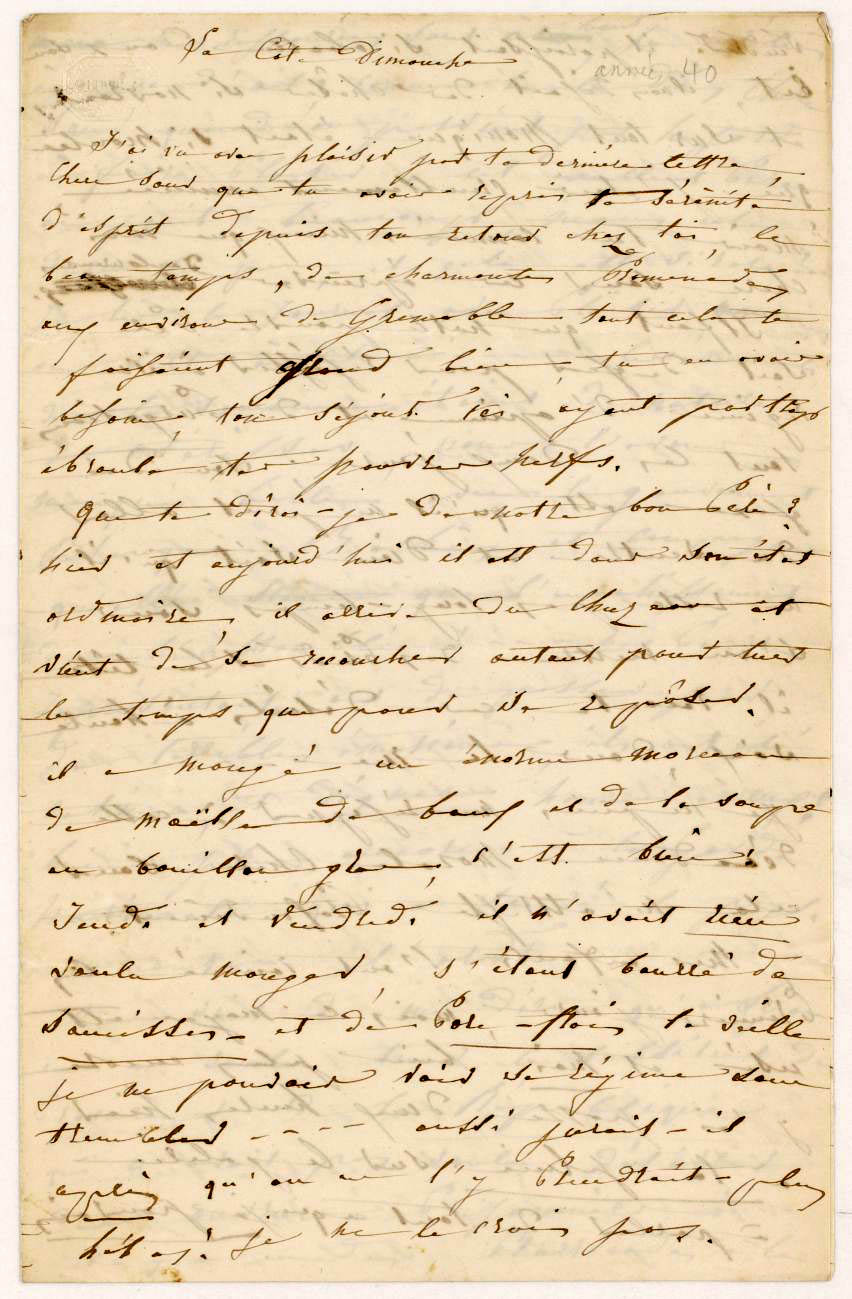 La Côte Dimanche
année 40
J'ai vu avec plaisir par ta dernière lettre,
chere soeur que tu avais repris ta sérénité
d'esprit depuis ton retour chez toi, le
beau temps, de charmantes Promenades
aux environs de Grenoble tout cela te
faisaient grand bien tu en avais
besoin, ton séjour ici ayant par trop
ébranlé tes pauvres nerfs.
Que te dirai-je de notre bon Père?
hier et aujourd'hui il est dans son état
ordinaire, il arrive du Chuzeau et
vient de se recoucher autant pour tuer
le temps que pour se repôser.
il a mangé un énorme morceau
de moëlle de boeuf et de la soupe
au bouillon gras, c'est bien!
Jeudi et Vendredi il n'avait rien
voulu manger, s'étant bourré de
saucisses et de Porc-frais la veille
je ne pouvais voir ce régime sans
trembler - - - - aussi jurait-il
après qu'on ne l'y Prendrait-plus
hélas! je ne le crois pas.